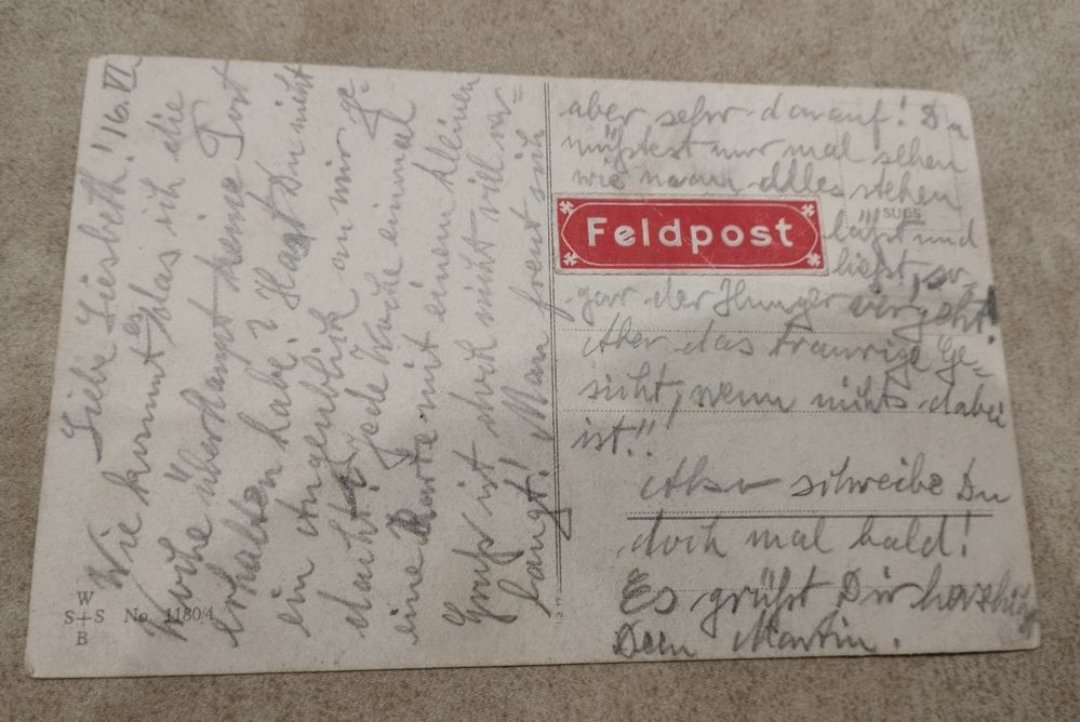 Liebe Liesbeth! 16.VI.
Wie kommt es, das ich die
Woche überhaupt keine Post
erhalten habe? Hast Du nicht
ein Augenblick an mir ge-
dacht? Jede Woche einmal
eine Karte mit einem kleinen
Gruß ist doch nicht vill ver=
langt! Man freut sich
aber sehr darauf! Du
müßtest nur mal sehen
wie man Alles stehen
läßt und
ließt, so-
gar der Hunger vergeht!
Aber das traurige Ge-
sicht, wenn nichts dabei
ist!!
Also schreibe Du
doch mal bald!
Es grüßt Dir herzlich
Dein Martin.
Feldpost
W
S+S
B
No. 1180/4